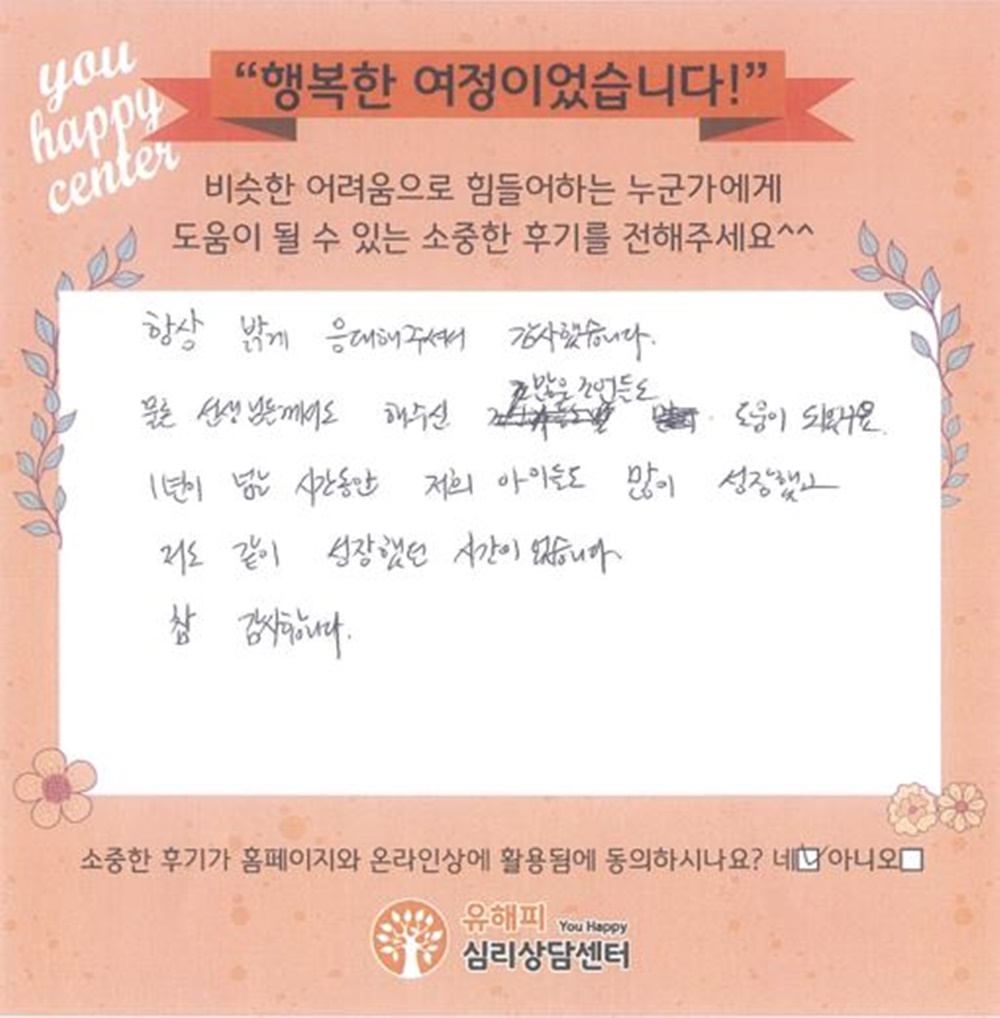 you
happy
center
“행복한 여정이었습니다!”
비슷한 어려움으로 힘들어하는 누군가에게
도움이 될 수 있는 소중한 후기를 전해주세요^^
항상 밝게 응대해주셔서 감사했습니다.
많은 조언들도
물론 선생님들께서도 해주신 도움이 되었구요.
1년이 넘는 시간동안 저희 아이들도 많이 성장했고
저도 같이 성장했던 시간이었습니다.
참 감사합니다.
소중한 후기가 홈페이지와 온라인상에 활용됨에 동의하시나요? 네☑ 아니오☐
유해피 You Happy
심리상담센터